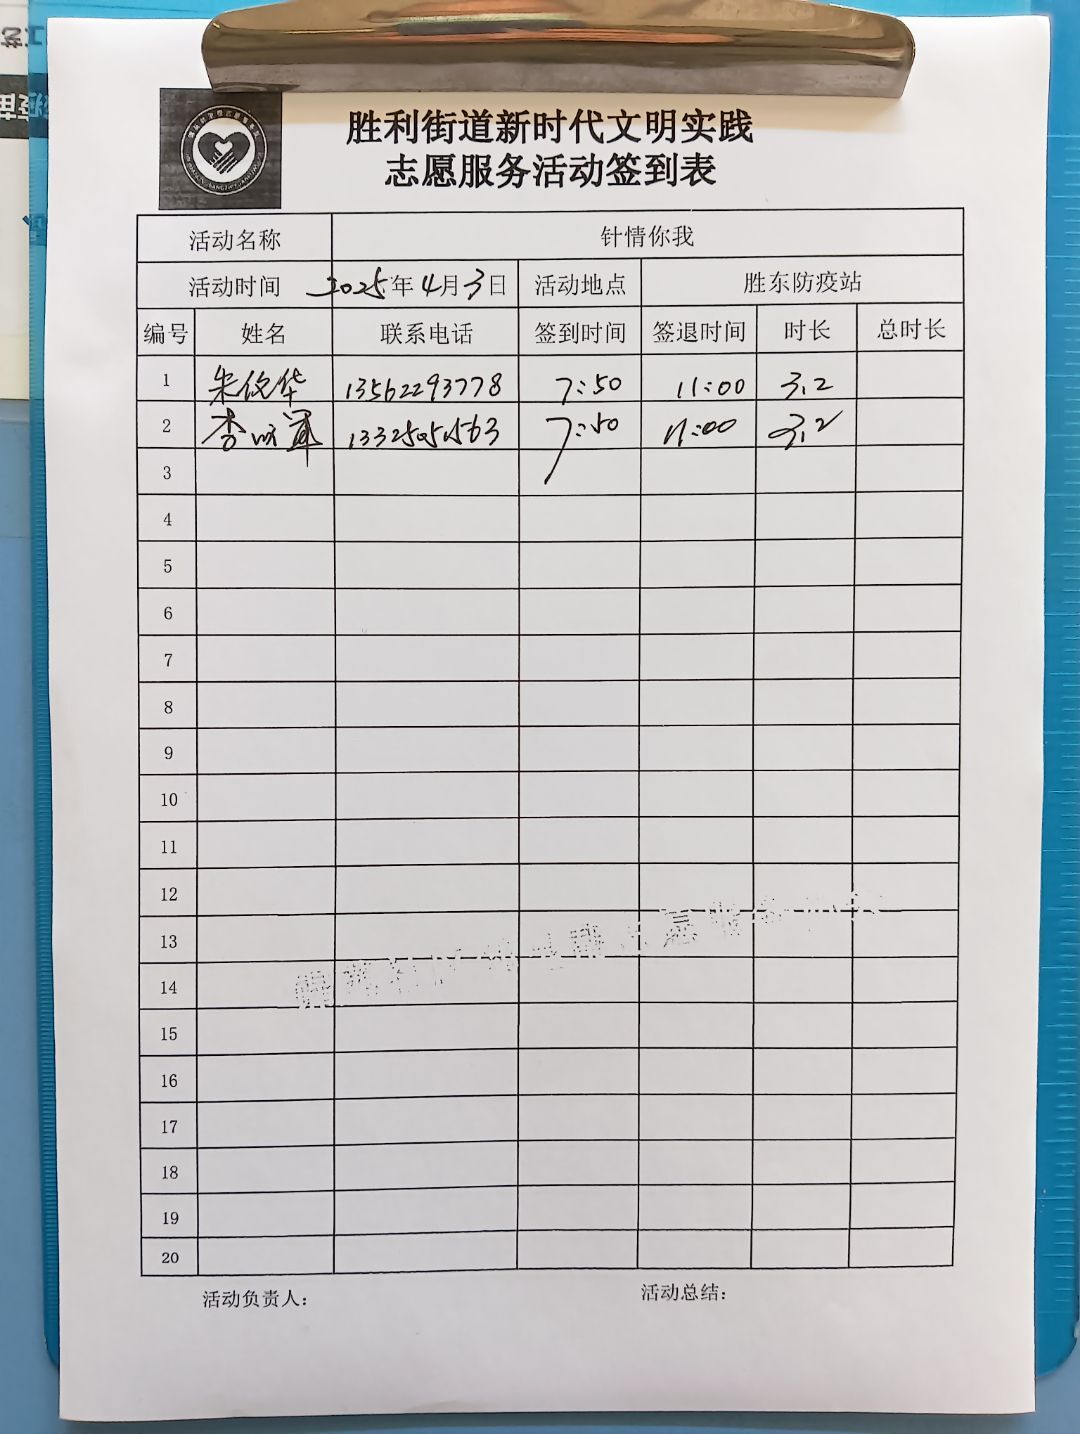 胜利街道新时代文明实践
志愿服务活动签到表
活动名称 针情你我
活动时间 2025年4月3日 活动地点 胜东防疫站
编号 姓名 联系电话 签到时间 签退时间 时长 总时长
1 朱俊华 13562293778 7:50 11:00 3.2
2 李 军 7:50 11:00 3.2
3
4
5
6
7
8
9
10
11
12
13
14
15
16
17
18
19
20
活动负责人： 活动总结：